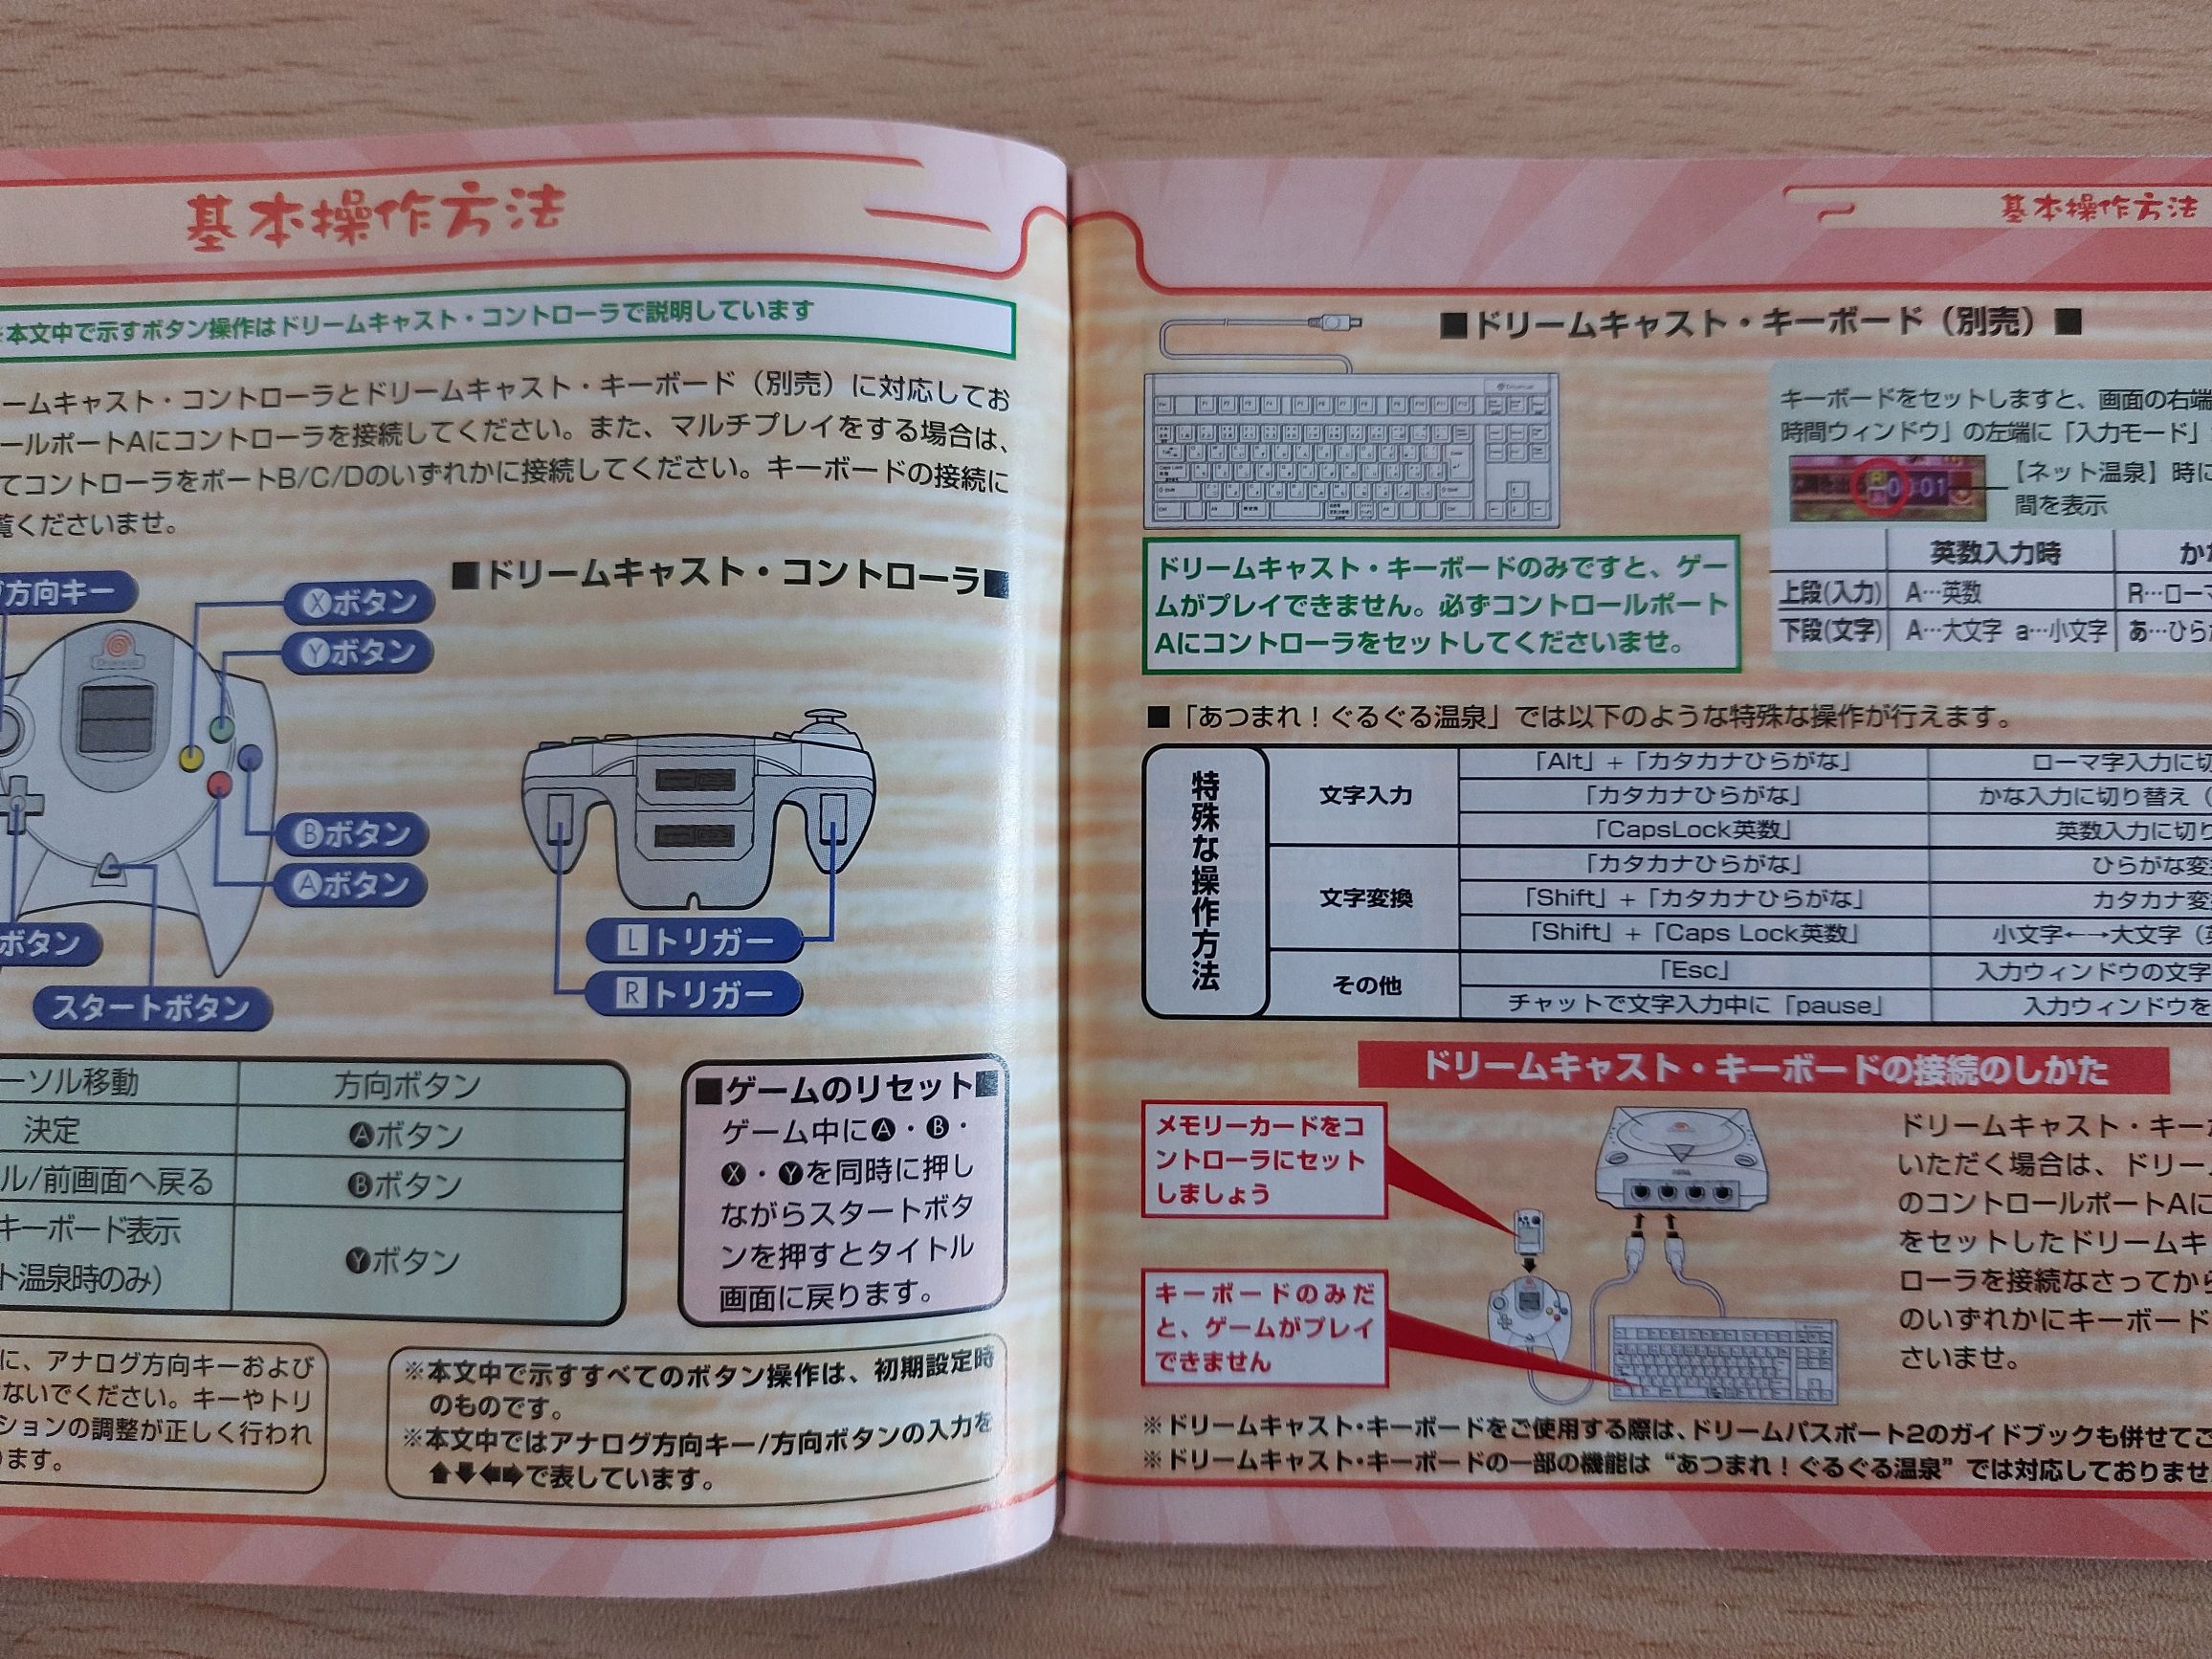 基本操作方法
本文中で示すボタン操作はドリームキャスト・コントローラで説明しています
ームキャスト・コントローラとドリームキャスト・キーボード（別売）に対応してお
ールポートAにコントローラを接続してください。また、マルチプレイをする場合は、
てコントローラをポートB/C/Dのいずれかに接続してください。キーボードの接続に
覧くださいませ。
■ドリームキャスト・コントローラ■
方向キー
Xボタン
Yボタン
Bボタン
Aボタン
ボタン
スタートボタン
Lトリガー
Rトリガー
ーソル移動 方向ボタン
決定 Aボタン
ル/前画面へ戻る Bボタン
キーボード表示
ト温泉時のみ） Yボタン
■ゲームのリセット■
ゲーム中にA・B・
X・Yを同時に押し
ながらスタートボタ
ンを押すとタイトル
画面に戻ります。
に、アナログ方向キーおよび
ないでください。キーやトリ
ションの調整が正しく行われ
ます。
※本文中で示すすべてのボタン操作は、初期設定時
のものです。
※本文中ではアナログ方向キー/方向ボタンの入力を
⬆⬇⬅➡で表しています。
基本操作方法
■ドリームキャスト・キーボード（別売）■
キーボードをセットしますと、画面の右端
時間ウィンドウ」の左端に「入力モード」
【ネット温泉】時に
間を表示
英数入力時 かな
上段(入力) A…英数 R…ローマ
下段(文字) A…大文字 a…小文字 あ…ひら
ドリームキャスト・キーボードのみですと、ゲー
ムがプレイできません。必ずコントロールポート
Aにコントローラをセットしてくださいませ。
■「あつまれ！ぐるぐる温泉」では以下のような特殊な操作が行えます。
特殊な操作方法
文字入力
「Alt」+「カタカナひらがな」 ローマ字入力に切
「カタカナひらがな」 かな入力に切り替え（
「CapsLock英数」 英数入力に切り
文字変換
「カタカナひらがな」 ひらがな変
「Shift」+「カタカナひらがな」 カタカナ変
「Shift」+「Caps Lock英数」 小文字←→大文字（
その他
「Esc」 入力ウィンドウの文字
チャットで文字入力中に「pause」 入力ウィンドウを
ドリームキャスト・キーボードの接続のしかた
メモリーカードをコ
ントローラにセット
しましょう
キーボードのみだ
と、ゲームがプレイ
できません
ドリームキャスト・キー
いただく場合は、ドリー
のコントロールポートAに
をセットしたドリームキ
ローラを接続なさってから
のいずれかにキーボード
さいませ。
※ドリームキャスト・キーボードをご使用する際は、ドリームパスポート2のガイドブックも併せてご
※ドリームキャスト・キーボードの一部の機能は“あつまれ！ぐるぐる温泉”では対応しておりませ